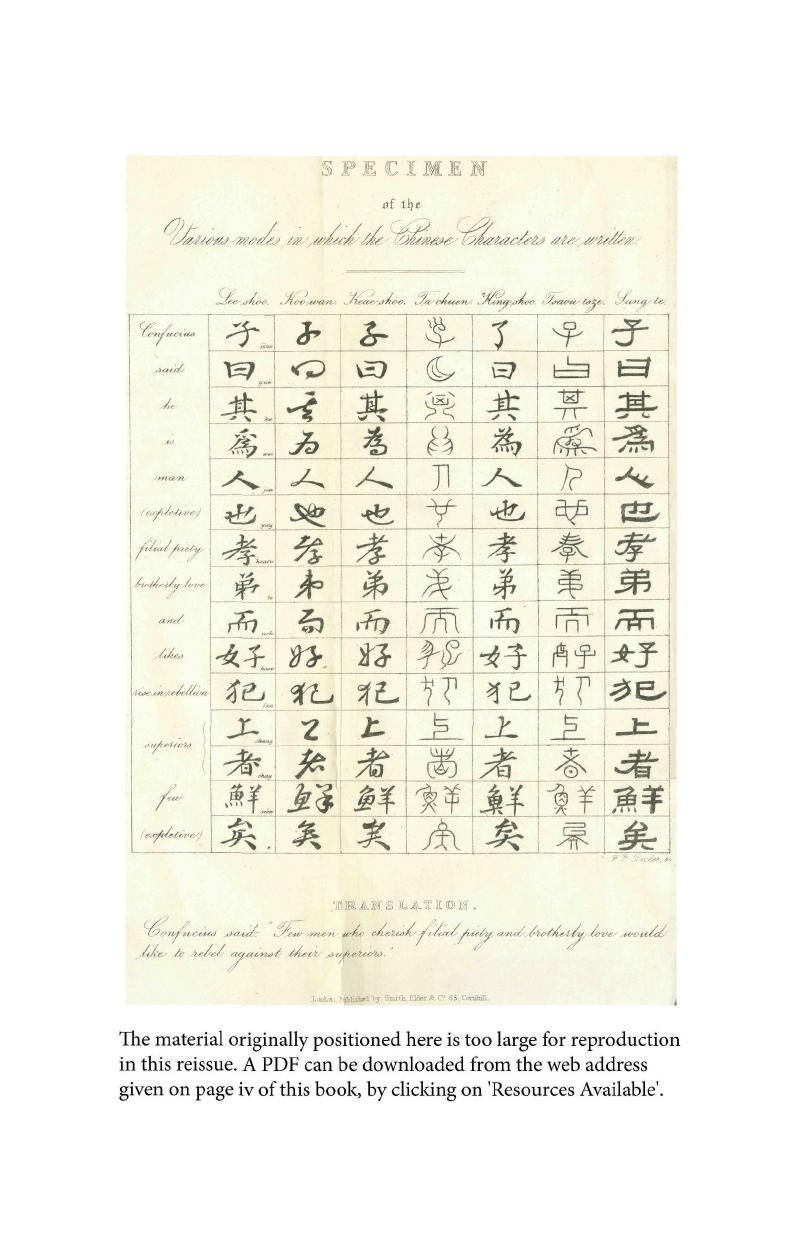 SPECIMEN
of the
Various modes in which the Chinese Characters are written.
Lee shoo. Koo wan. Keae shoo. Ta chuen. Hing shoo. Tsaou tsze. Sung te.
Confucius 子 子 子 子 子 子
said 曰 曰 曰 曰 曰 曰
he 其 其 其 其 其
is 爲 为 為 為 爲
man 人 人 人 人 人 人
(expletive) 也 也 也 也 也
filial piety 孝 孝 孝 孝 孝 孝
brotherly love 弟 弟 弟 弟 弟 弟
and 而 而 而 而 而 而 而
likes 好 好 好 好 好 好
rise in rebellion 犯 犯 犯 犯 犯
superiors 上 上 上 上 上 上
者 者 者 者 者
few 鮮 鮮 鮮 鮮 鮮 鮮 鮮
(expletive) 矣 矣 矣 矣 矣
TRANSLATION.
Confucius said: "Few men who cherish filial piety and brotherly love would
like to rebel against their superiors."
London, Published by Smith, Elder & Co. 65, Cornhill.
The material originally positioned here is too large for reproduction
in this reissue. A PDF can be downloaded from the web address
given on page iv of this book, by clicking on 'Resources Available'.